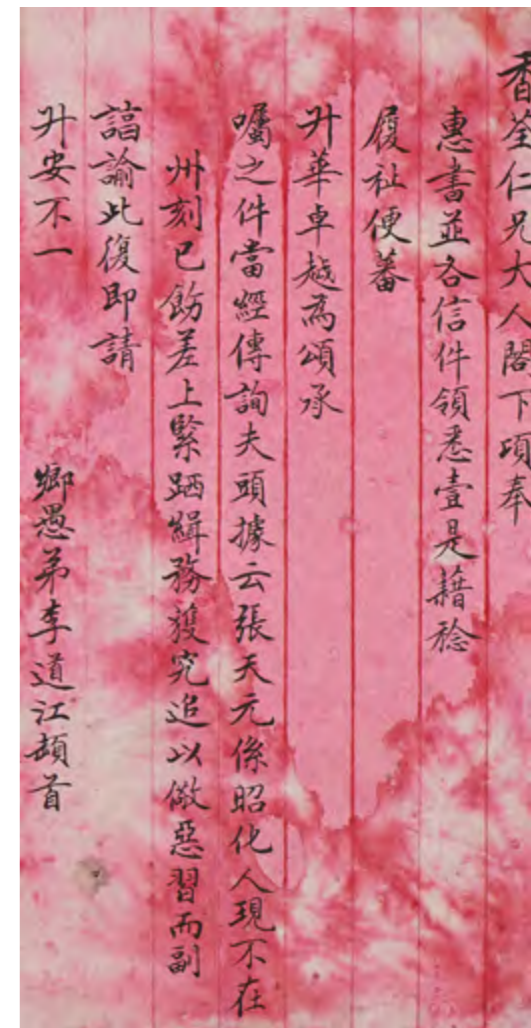 香荃仁兄大人閣下頃奉
惠書並各信件領悉壹是藉稔
履祉便蕃
升華卓越為頌承
囑之件當經傳詢夫頭據云張天元係昭化人現不在
州刻已飭差上緊跴緝務獲究追以儆惡習而副
諄諭此復即請
升安不一
鄉愚弟李道江頓首